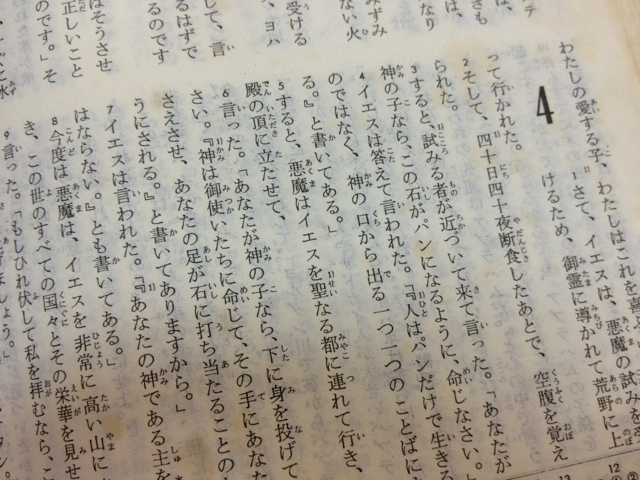 のです。」そ
正しいこと
はそうさせ
るはずで
るのです
して、言
ヨハ
受ける
ない火
みずみ
なり
さも
わたしの愛する子、わたしはこれを喜
4
さて、イエスは、悪魔の試みを受
けるため、御霊に導かれて荒野に上
って行かれた。
2 そして、四十日四十夜断食したあとで、空腹を覚え
られた。
3 すると、試みる者が近づいて来て言った。「あなたが
神の子なら、この石がパンになるように、命じなさい。」
4 イエスは答えて言われた。「『人はパンだけで生きる
のではなく、神の口から出る一つ一つのことばによ
る。』と書いてある。」
5 すると、悪魔はイエスを聖なる都に連れて行き、
殿の頂に立たせて、
6 言った。「あなたが神の子なら、下に身を投げて
さい。『神は御使いたちに命じて、その手にあなた
さえさせ、あなたの足が石に打ち当たることの
うにされる。』と書いてありますから。」
7 イエスは言われた。「『あなたの神である主を
はならない。』とも書いてある。」
8 今度は悪魔は、イエスを非常に高い山に
き、この世のすべての国々とその栄華を見せ
9 言った。「もしひれ伏して私を拝むなら、こ
ましょう。」